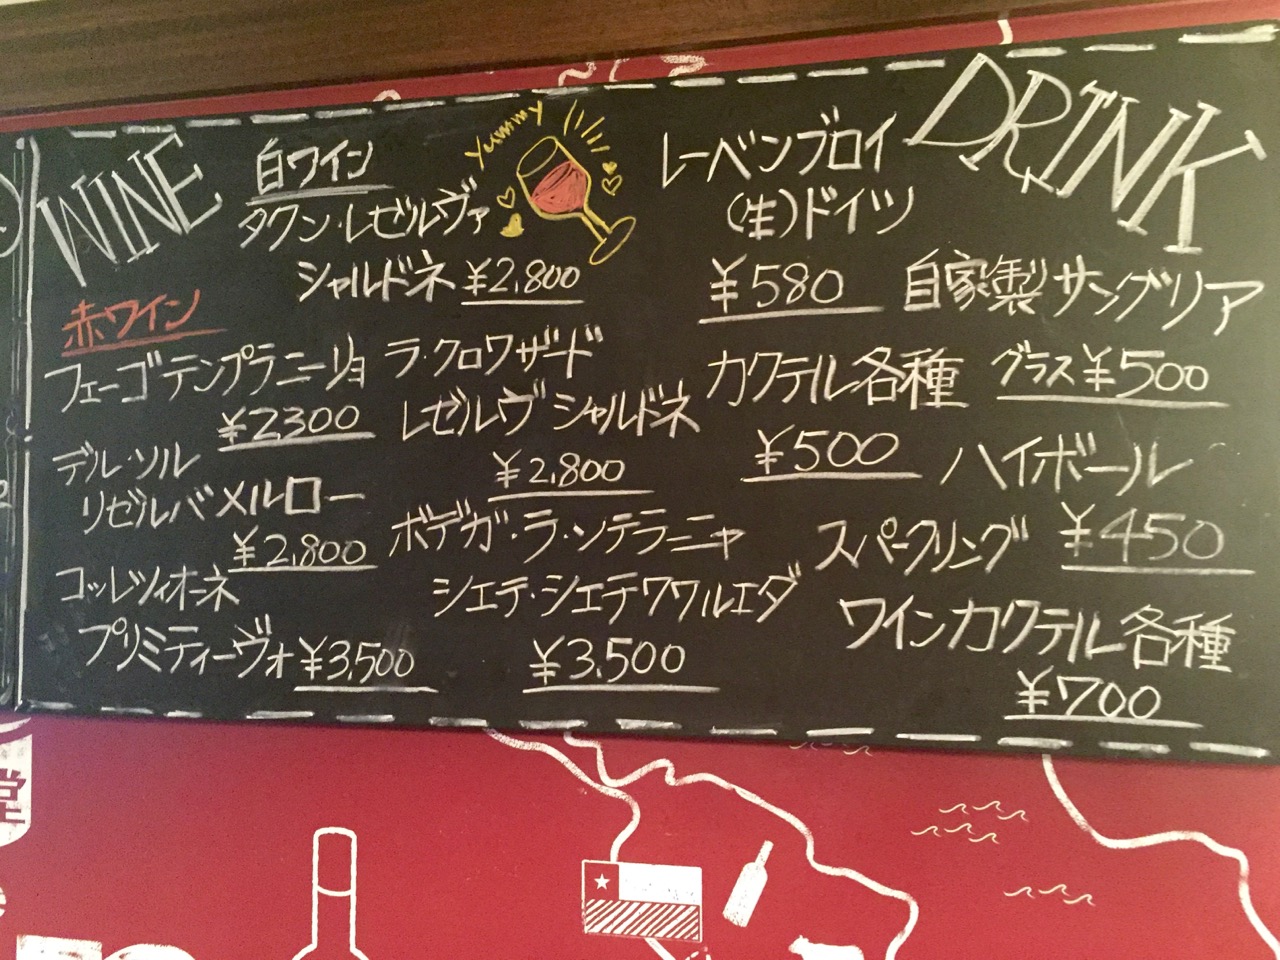 WINE
白ワイン
タクン・レゼルヴァ
シャルドネ ¥2,800
Yummy
赤ワイン
フェーゴ テンプラニーリョ
¥2300
デル・ソル
リゼルバ メルロー
¥2,800
コッレツィオーネ
プリミティーヴォ ¥3,500
ラ・クロワザード
レゼルヴ シャルドネ
¥2,800
ボデガ・ラ・ソテラーニャ
シエテ・シエテ ワワルエダ
¥3,500
DRINK
レーベンブロイ
(生)ドイツ
¥580
自家製サングリア
グラス ¥500
カクテル各種
¥500
ハイボール
¥450
スパークリング
ワインカクテル各種
¥700
堂